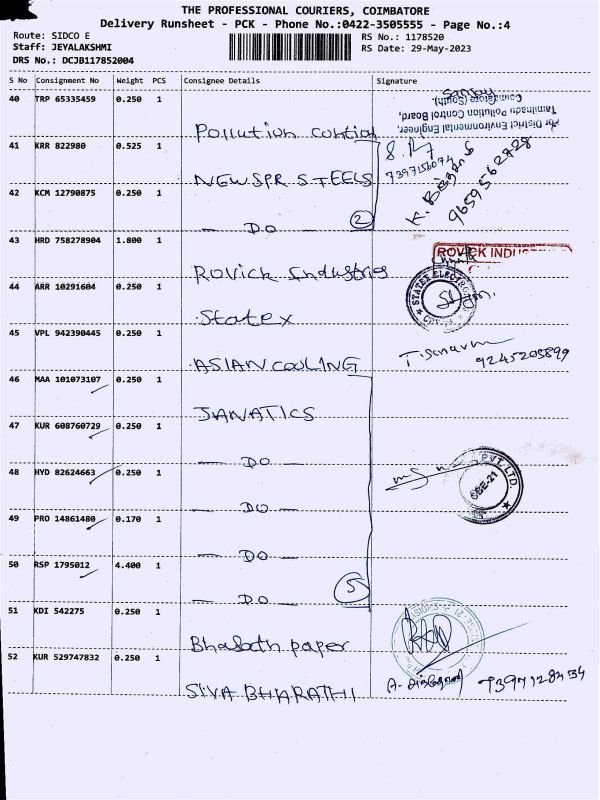 THE PROFESSIONAL COURIERS, COIMBATORE
Delivery Runsheet - PCK - Phone No.:0422-3505555 - Page No.:4
Route: SIDCO E
RS No.: 1178520
Staff: JEYALAKSHMI
RS Date: 29-May-2023
DRS No.: DCJB117852004
S No Consignment No Weight PCS Consignee Details Signature
40 TRP 65335459 0.250 1
Pollution control
Air District Environmental Engineer,
Tamilnadu Pollution Control Board,
Coimbatore (South).
41 KRR 822980 0.525 1
NEWSPR STEELS
9659562728
42 KCM 12790875 0.250 1
— DO — 2
43 HRD 758278904 1.800 1
Rovick Industries
ROVICK INDU
44 ARR 10291604 0.250 1
Statex
STATEX ELECTRO
45 VPL 942390445 0.250 1
ASIAN COOLING
9245205899
46 MAA 101073107 0.250 1
JANATICS
47 KUR 608760729 0.250 1
— DO —
48 HYD 82624663 0.250 1
— DO —
PVT. LTD.
49 PRO 14861480 0.170 1
— DO —
50 RSP 1795012 4.400 1
— DO — 5
51 KDI 542275 0.250 1
Bharath paper
52 KUR 529747832 0.250 1
SIVA BHARATHI